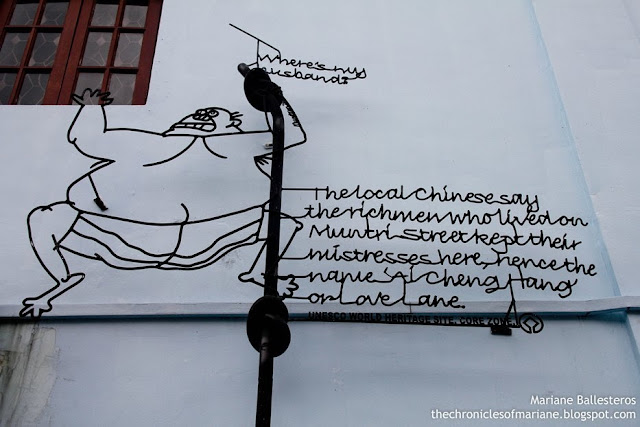 Where's my
husband?
The local Chinese say
the rich men who lived on
Muntri Street kept their
mistresses here, hence the
name 'Ai Cheng Hang'
or Love Lane.
UNESCO WORLD HERITAGE SITE, CORE ZONE
Mariane Ballesteros
thechroniclesofmariane.blogspot.com